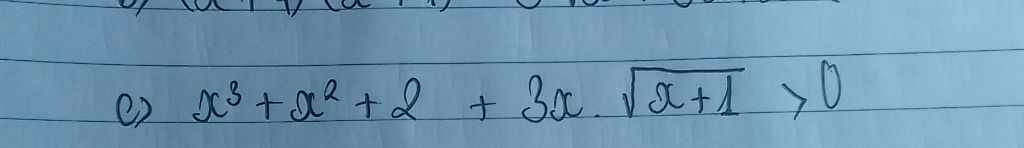 c) x³ + x² + 2 + 3x.√(x+1) > 0